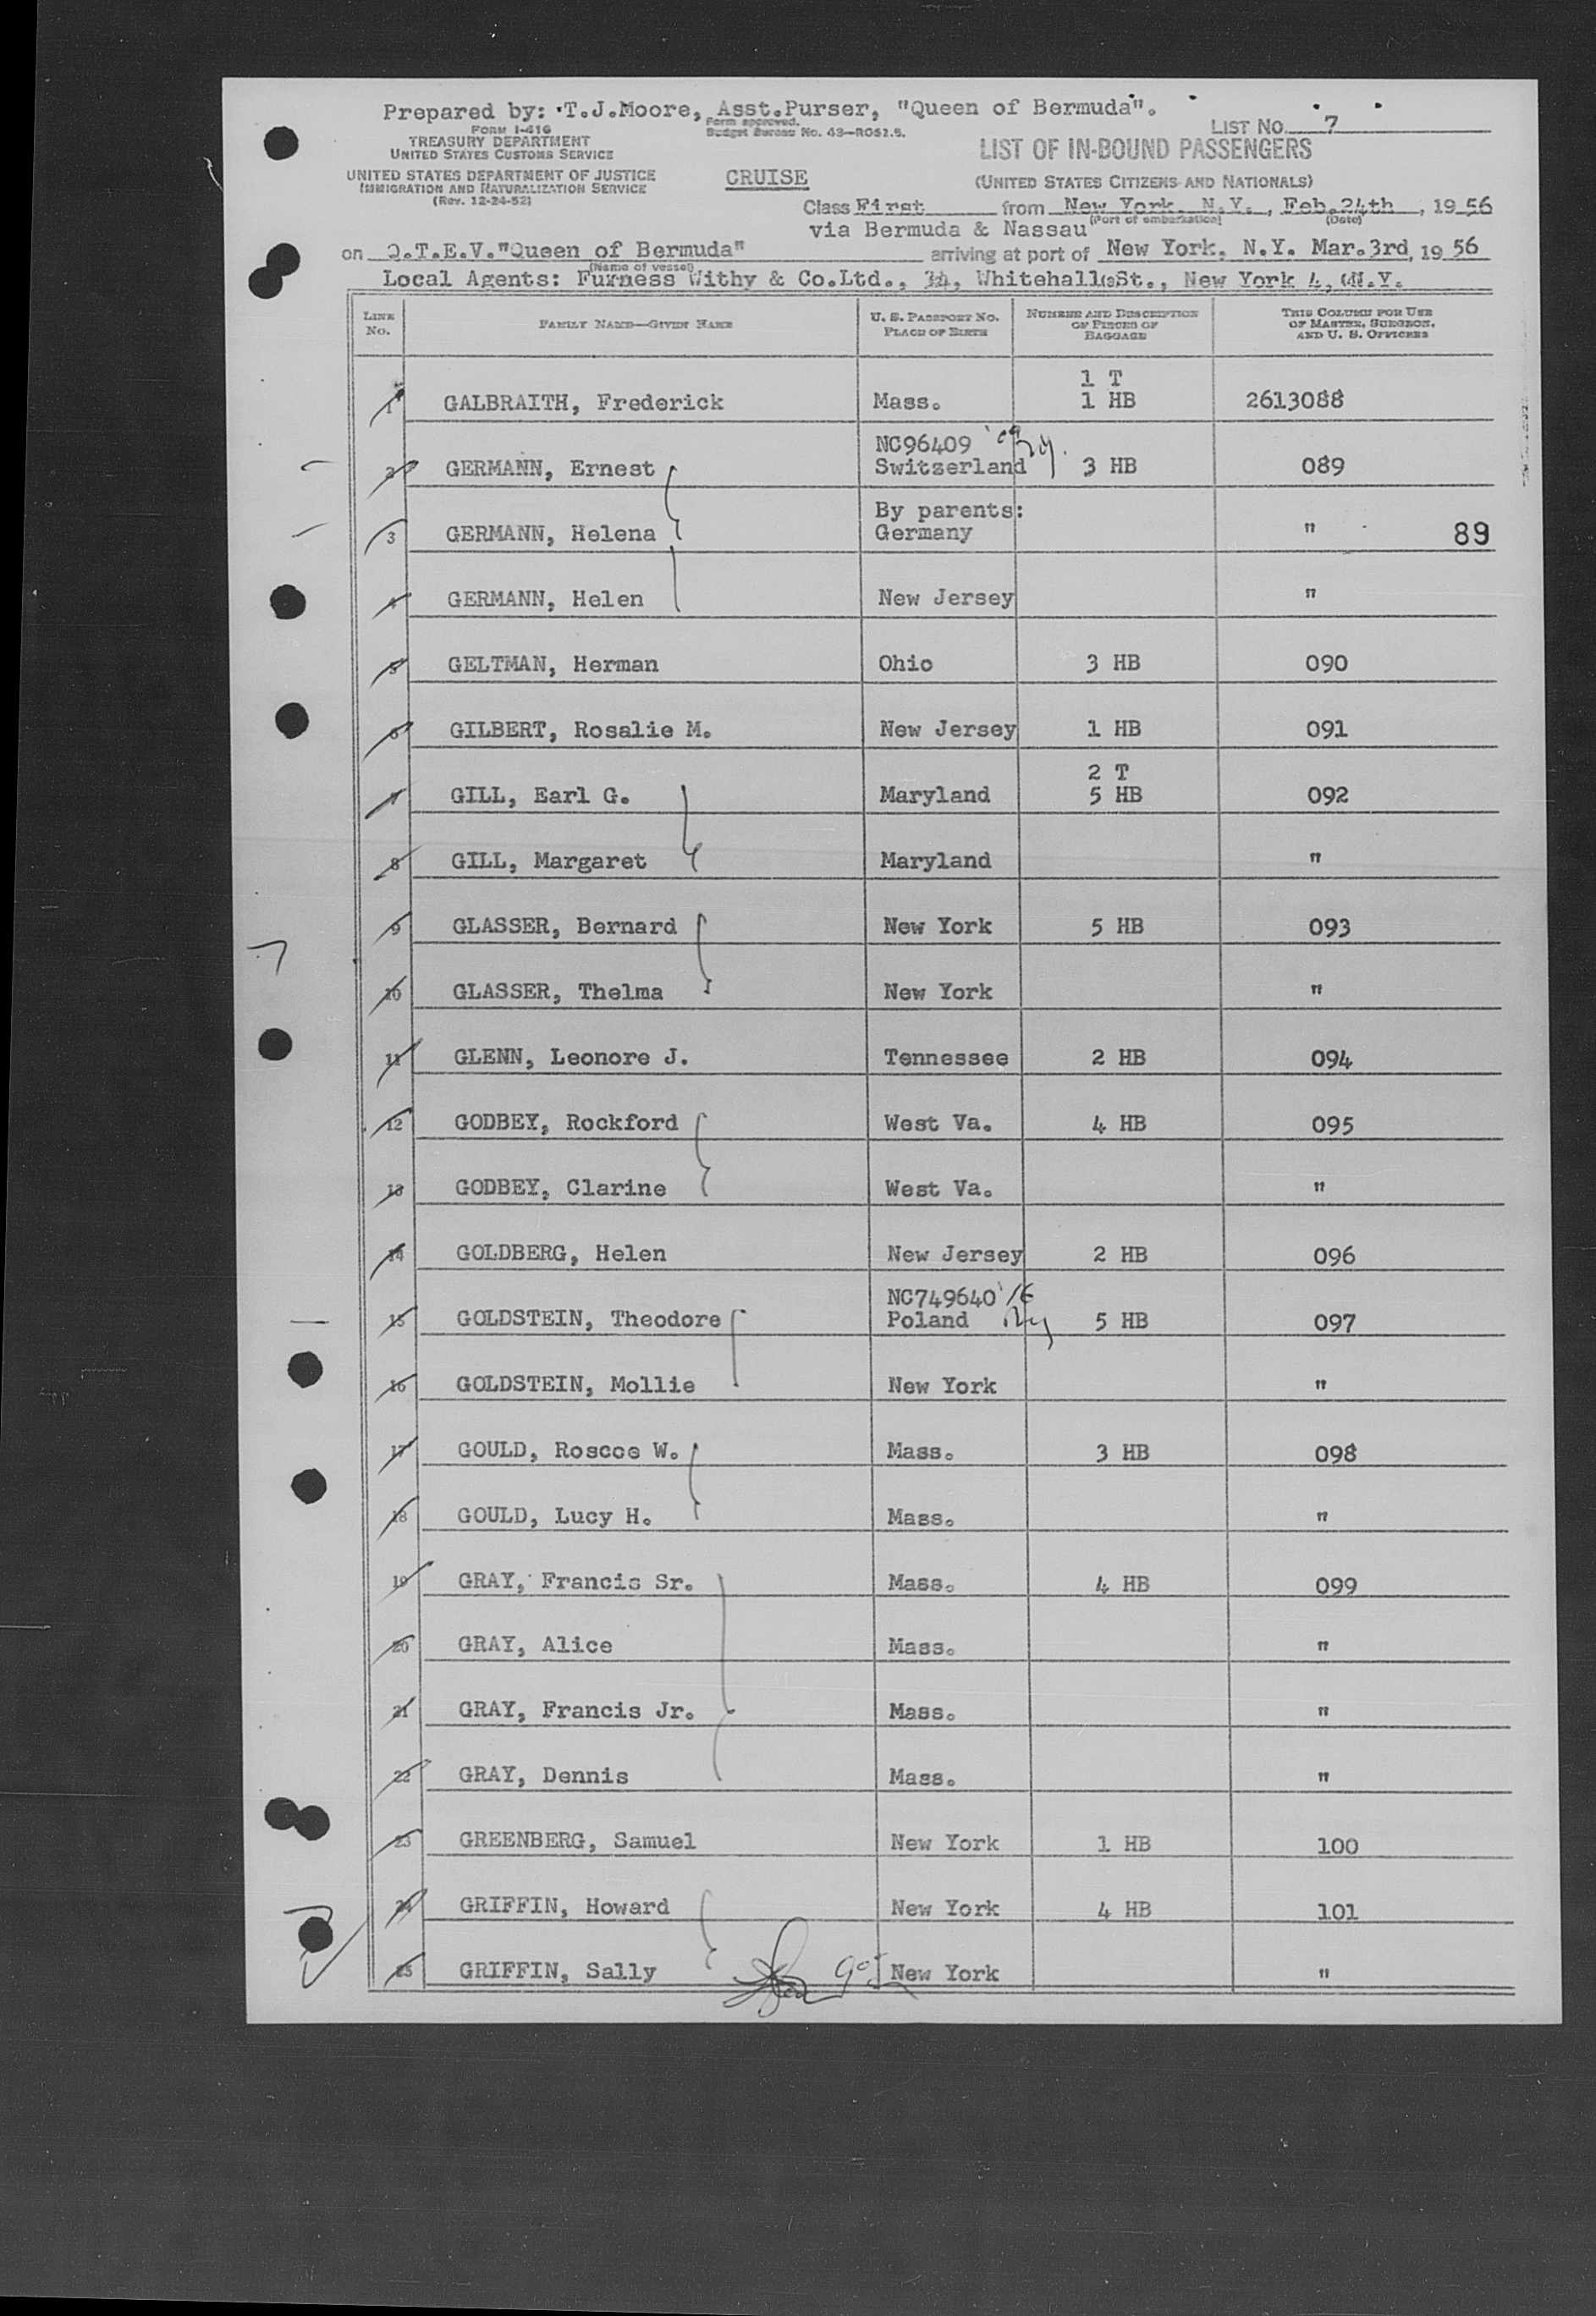 Prepared by: T.J.Moore, Asst.Purser, "Queen of Bermuda".
FORM I-416
TREASURY DEPARTMENT
UNITED STATES CUSTOMS SERVICE
Form approved.
Budget Bureau No. 43—R051.5.
LIST No. 7
LIST OF IN-BOUND PASSENGERS
UNITED STATES DEPARTMENT OF JUSTICE
IMMIGRATION AND NATURALIZATION SERVICE
(Rev. 12-24-52)
CRUISE
(UNITED STATES CITIZENS AND NATIONALS)
Class First from New York, N.Y., Feb.24th, 1956
(Port of embarkation) (Date)
via Bermuda & Nassau
on Q.T.E.V."Queen of Bermuda" arriving at port of New York, N.Y. Mar.3rd, 1956
(Name of vessel)
Local Agents: Furness Withy & Co.Ltd., 34, Whitehall St., New York 4, N.Y.
LINE No. FAMILY NAME—GIVEN NAME U. S. PASSPORT NO. PLACE OF BIRTH NUMBER AND DESCRIPTION OF PIECES OF BAGGAGE THIS COLUMN FOR USE OF MASTER, SURGEON, AND U. S. OFFICERS
1 T
1 GALBRAITH, Frederick Mass. 1 HB 2613088
NC96409
2 GERMANN, Ernest Switzerland 3 HB 089
By parents:
3 GERMANN, Helena Germany " 89
4 GERMANN, Helen New Jersey "
5 GELTMAN, Herman Ohio 3 HB 090
6 GILBERT, Rosalie M. New Jersey 1 HB 091
2 T
7 GILL, Earl G. Maryland 5 HB 092
8 GILL, Margaret Maryland "
9 GLASSER, Bernard New York 5 HB 093
10 GLASSER, Thelma New York "
11 GLENN, Leonore J. Tennessee 2 HB 094
12 GODBEY, Rockford West Va. 4 HB 095
13 GODBEY, Clarine West Va. "
14 GOLDBERG, Helen New Jersey 2 HB 096
NC749640
15 GOLDSTEIN, Theodore Poland 5 HB 097
16 GOLDSTEIN, Mollie New York "
17 GOULD, Roscoe W. Mass. 3 HB 098
18 GOULD, Lucy H. Mass. "
19 GRAY, Francis Sr. Mass. 4 HB 099
20 GRAY, Alice Mass. "
21 GRAY, Francis Jr. Mass. "
22 GRAY, Dennis Mass. "
23 GREENBERG, Samuel New York 1 HB 100
24 GRIFFIN, Howard New York 4 HB 101
25 GRIFFIN, Sally New York "